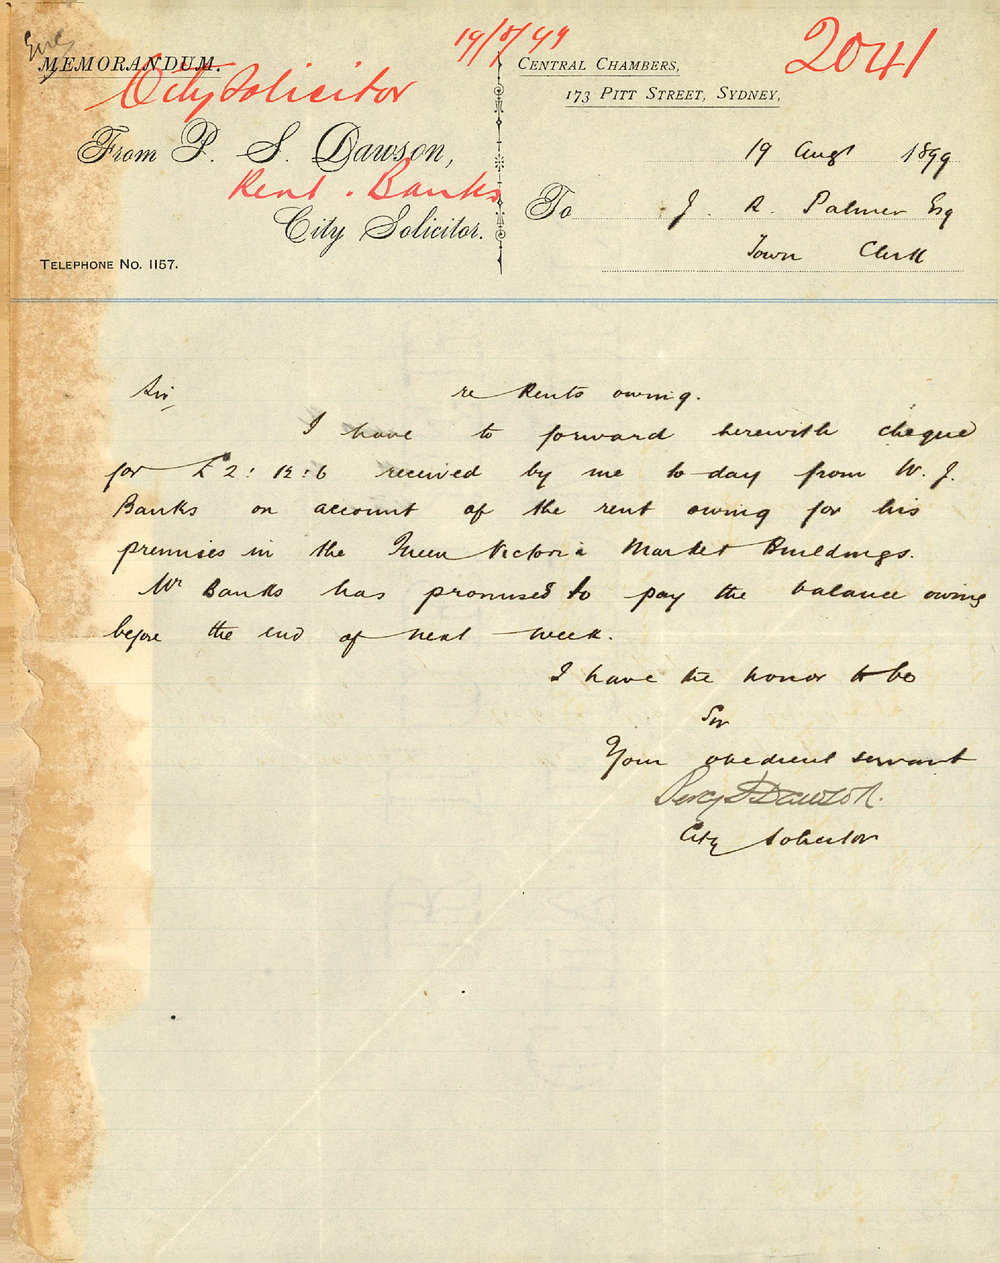 19/8/99
2041
MEMORANDUM.
CENTRAL CHAMBERS,
City Solicitor
173 PITT STREET, SYDNEY,
From P. S. Dawson,
19 Augt 1899
Rent. Banks
To J. R. Palmer Esq
City Solicitor.
Town Clerk
TELEPHONE NO. 1157.
Sir, re Rents owing.
I have to forward herewith cheque
for £2:12:6 received by me to-day from W. J.
Banks on account of the rent owing for his
premises in the Queen Victoria Market Buildings.
Mr Banks has promised to pay the balance owing
before the end of next week.
I have the honor to be
Sir
Your obedient servant
Percy S Dawson.
City Solicitor